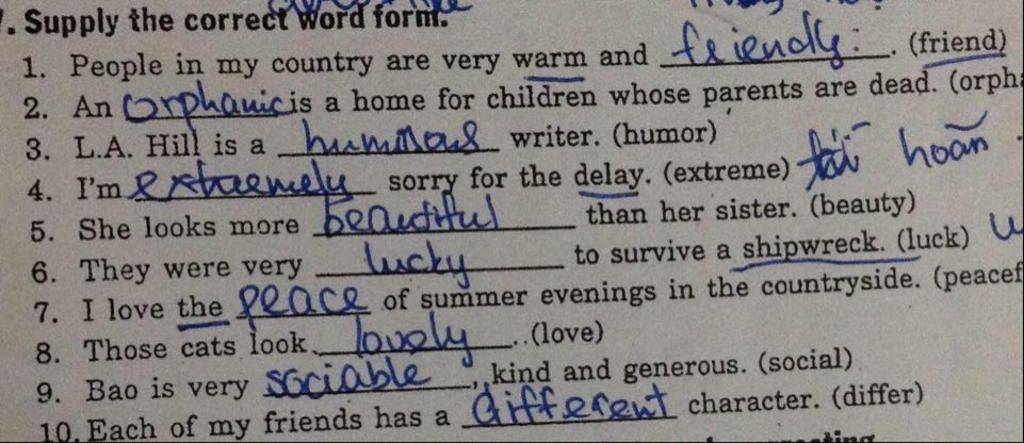 . Supply the correct word form.
1. People in my country are very warm and friendly. (friend)
2. An orphanic is a home for children whose parents are dead. (orph
3. L.A. Hill is a humorous writer. (humor)
4. I'm extremely sorry for the delay. (extreme) hoãn
5. She looks more beautiful than her sister. (beauty)
6. They were very lucky to survive a shipwreck. (luck)
7. I love the peace of summer evenings in the countryside. (peacef
8. Those cats look lovely. (love)
9. Bao is very sociable, kind and generous. (social)
10. Each of my friends has a different character. (differ)